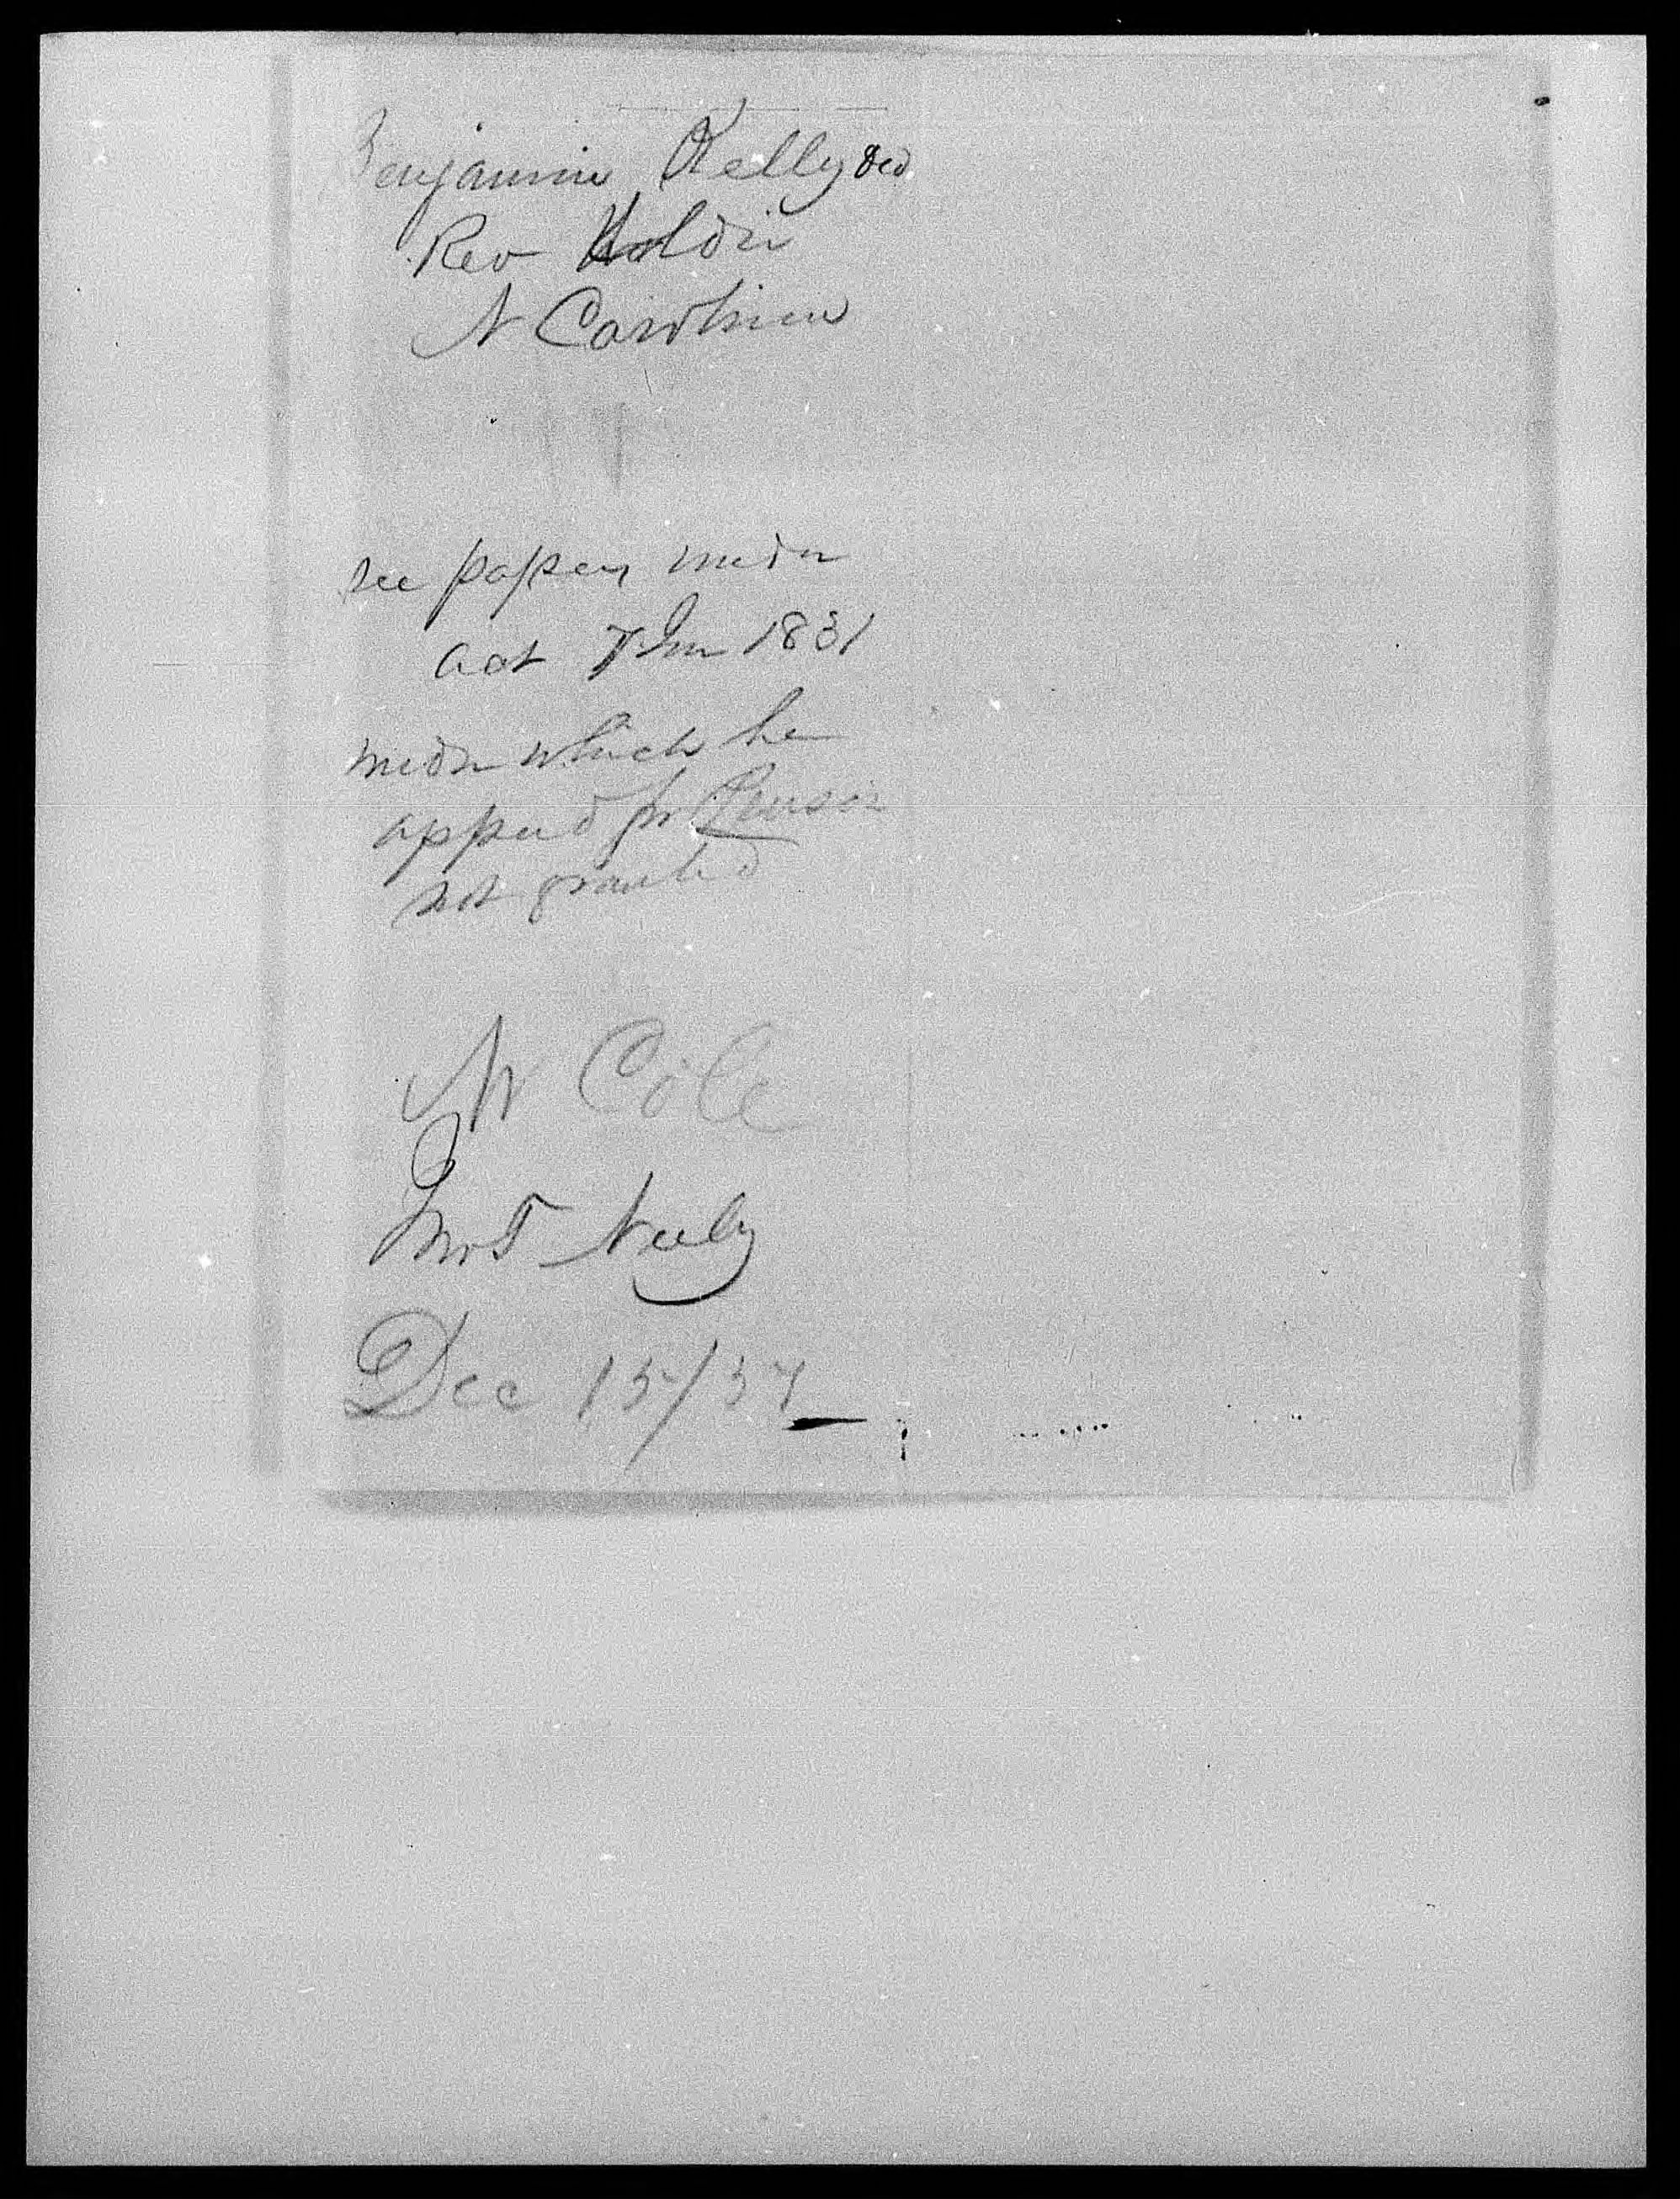 Benjamin Kelly decd
Rev Soldier
N Carolina
see papers under
act 7 June 1832
under which he
applied for Pension
not granted
Mr Cole
Jno T Neely
Dec 15/54